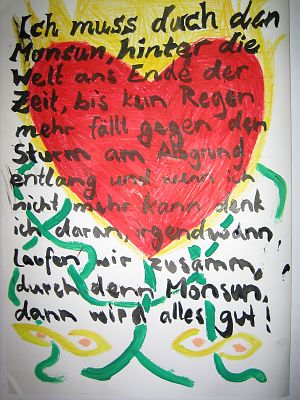 Ich muss durch dan
Monsun, hinter die
Welt ans Ende der
Zeit, bis kein Regen
mehr fällt gegen den
Sturm am Abgrund
entlang und wenn ich
nicht mehr kann denk
ich daran, irgendwann
laufen wir zusamm,
durch denn Monsun,
dann wird alles gut!